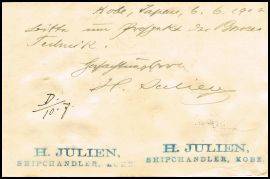 Kobe, Japan, 6. 6. 190
bitte um Prospekt der Bones
Technik.
Hochachtungsvoll
H. Julien
D/10.7
H. JULIEN,
SHIPCHANDLER, KOBE.
H. JULIEN,
SHIPCHANDLER, KOBE.